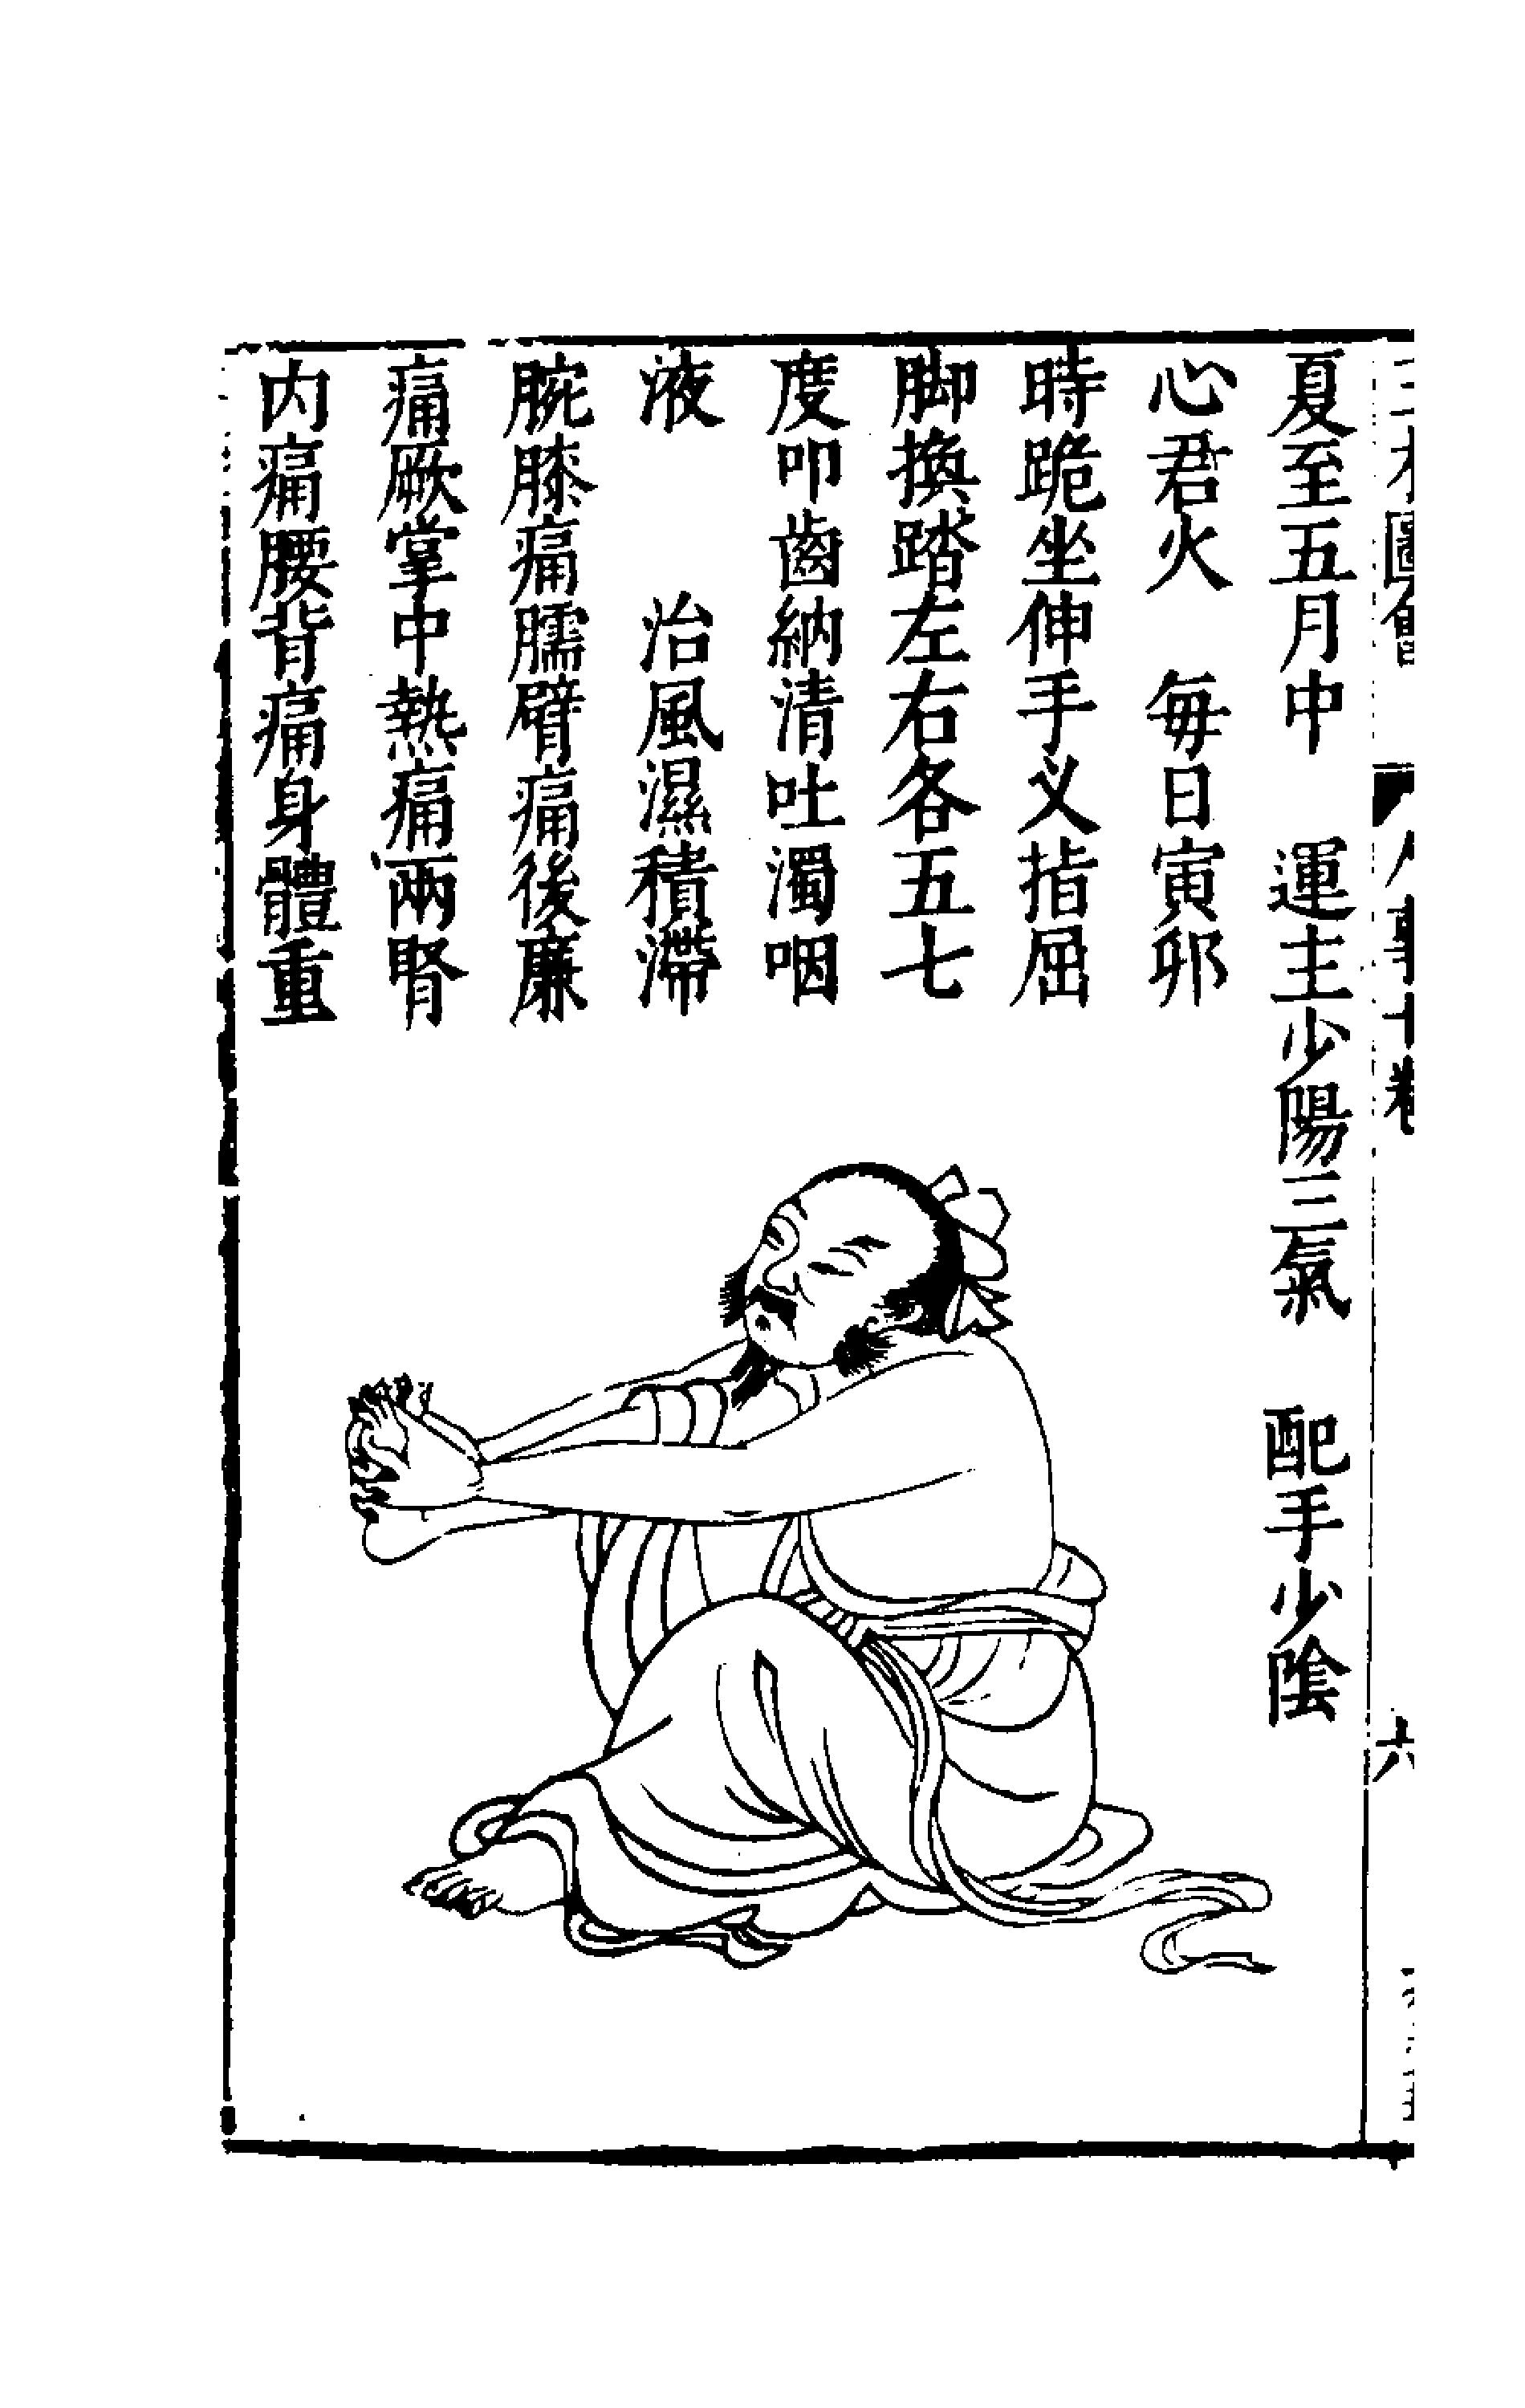 夏至五月中　運主少陽三氣　配手少陰
心君火　毎日寅卯
時跪坐伸手义指屈
脚換踏左右各五七
度叩齒納清吐濁咽
液　治風濕積滯
腕膝痛臑臂痛後廉
痛厥掌中熱痛兩腎
内痛腰背痛身體重
六